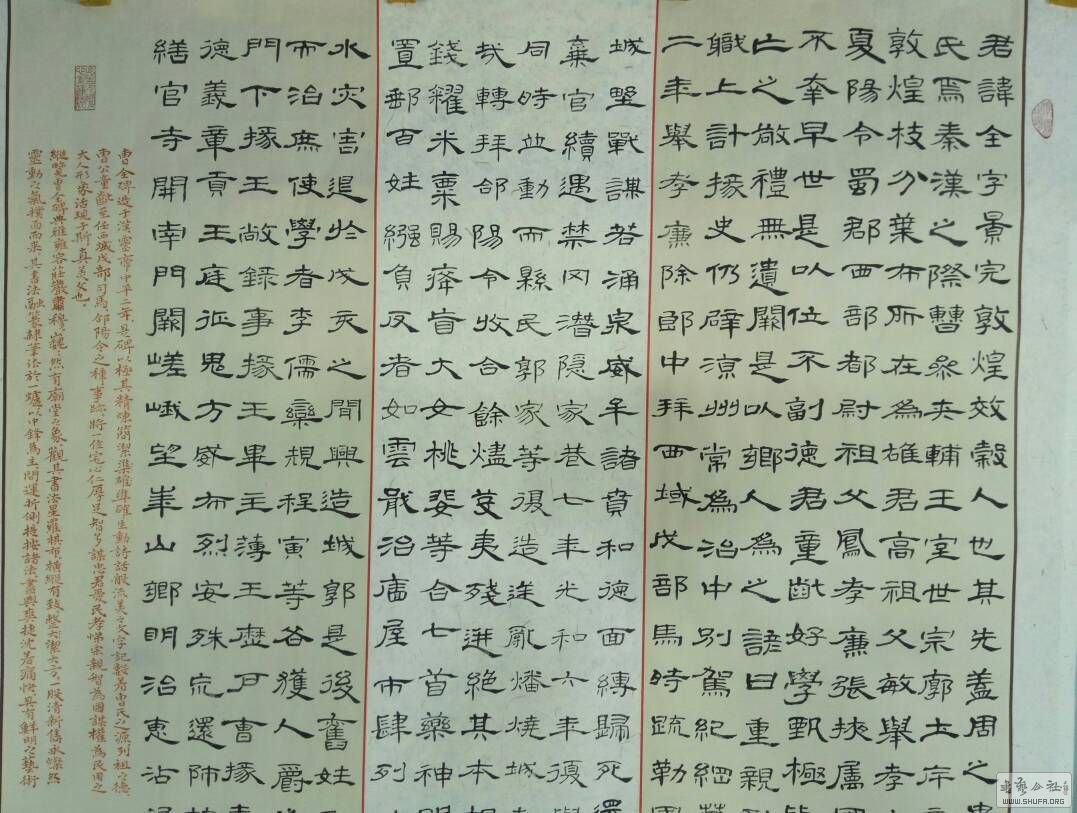 君諱全字景完敦煌效穀人也其先蓋周之
氏焉秦漢之際曹參夾輔王室世宗廓土斥
敦煌枝分葉布所在為雄君高祖父敏舉孝
夏陽令蜀郡西部都尉祖父鳳孝廉張掖屬國
不幸早世是以位不副德君童齔好學甄極
亡之敬禮無遺闕是以鄉人為之諺曰重親
職上計掾史仍辟涼州常為治中別駕紀綱萬
二年舉孝廉除郎中拜西域戊部馬時疏勒
城野戰謀若涌泉威牟諸賁和德面縛歸死還
棄官續遇禁冈潛隱家巷七年光和六年復
同時並動而縣民郭家等復造逆亂燔燒城
哉轉拜郃陽令收合餘燼芟夷殘迸絕其本
錢糴米粟賜癃盲大女桃婓等合七首藥神明
置郵百姓繈負反者如雲戢治廧屋市肆列
水灾害退於戌亥之間興造城郭是後舊姓
而治庶使學者李儒欒規程寅等各獲人爵
門下掾王敞錄事掾王畢主薄王歷戶曹掾
德義章貢王庭征鬼方威布烈安殊荒還師
繕官寺開南門闕嵯峨望華山鄉明治惠沾
曹全碑造于漢靈帝中平二年是碑以極其精煉簡潔準確生動詩話般流美之文字記載着曹氏之源列祖之德
曹公童齔至任西域戊部司馬郃陽令之種種事跡將一位宅心仁厚足智多謀忠君愛民孝悌宗親智為國謀權為民用之
大人形象活現于斯真美文也
縱覽曹全碑典雅雍容莊嚴肅穆巍然有廟堂之象觀其書法星羅棋布橫縱有致整大潔大方一股清新雋永燦然
靈動之氣撲面而来其書法融篆隸筆法於一爐以中鋒為主間運折側提按諸法書與爽捷沈着痛快具有鮮明之藝術
WWW.SHUFA.ORG